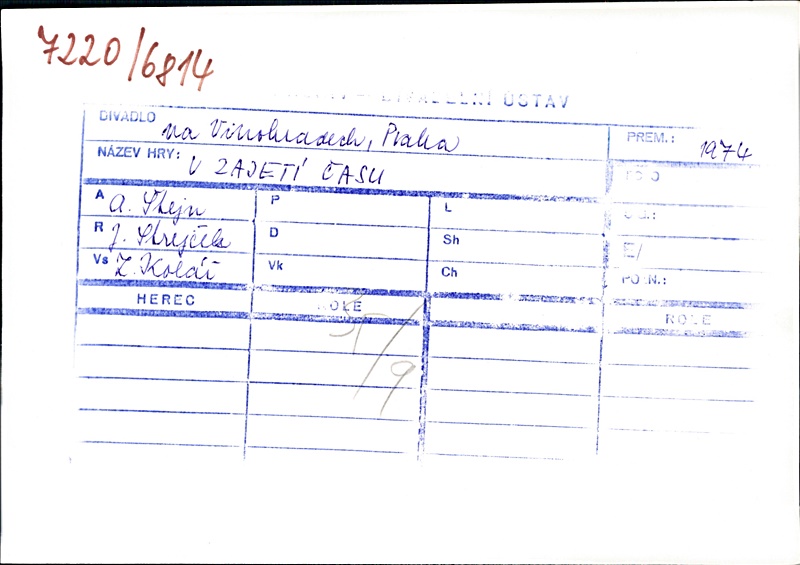 7220/6814
DIVADELNÍ ÚSTAV
DIVADLO na Vinohradech, Praha PREM.: 1974
NÁZEV HRY: V ZAJETÍ ČASU
A A. Štejn P L
R J. Strejček D Sh
Vs Z. Kolář Vk Ch
HEREC ROLE ROLE